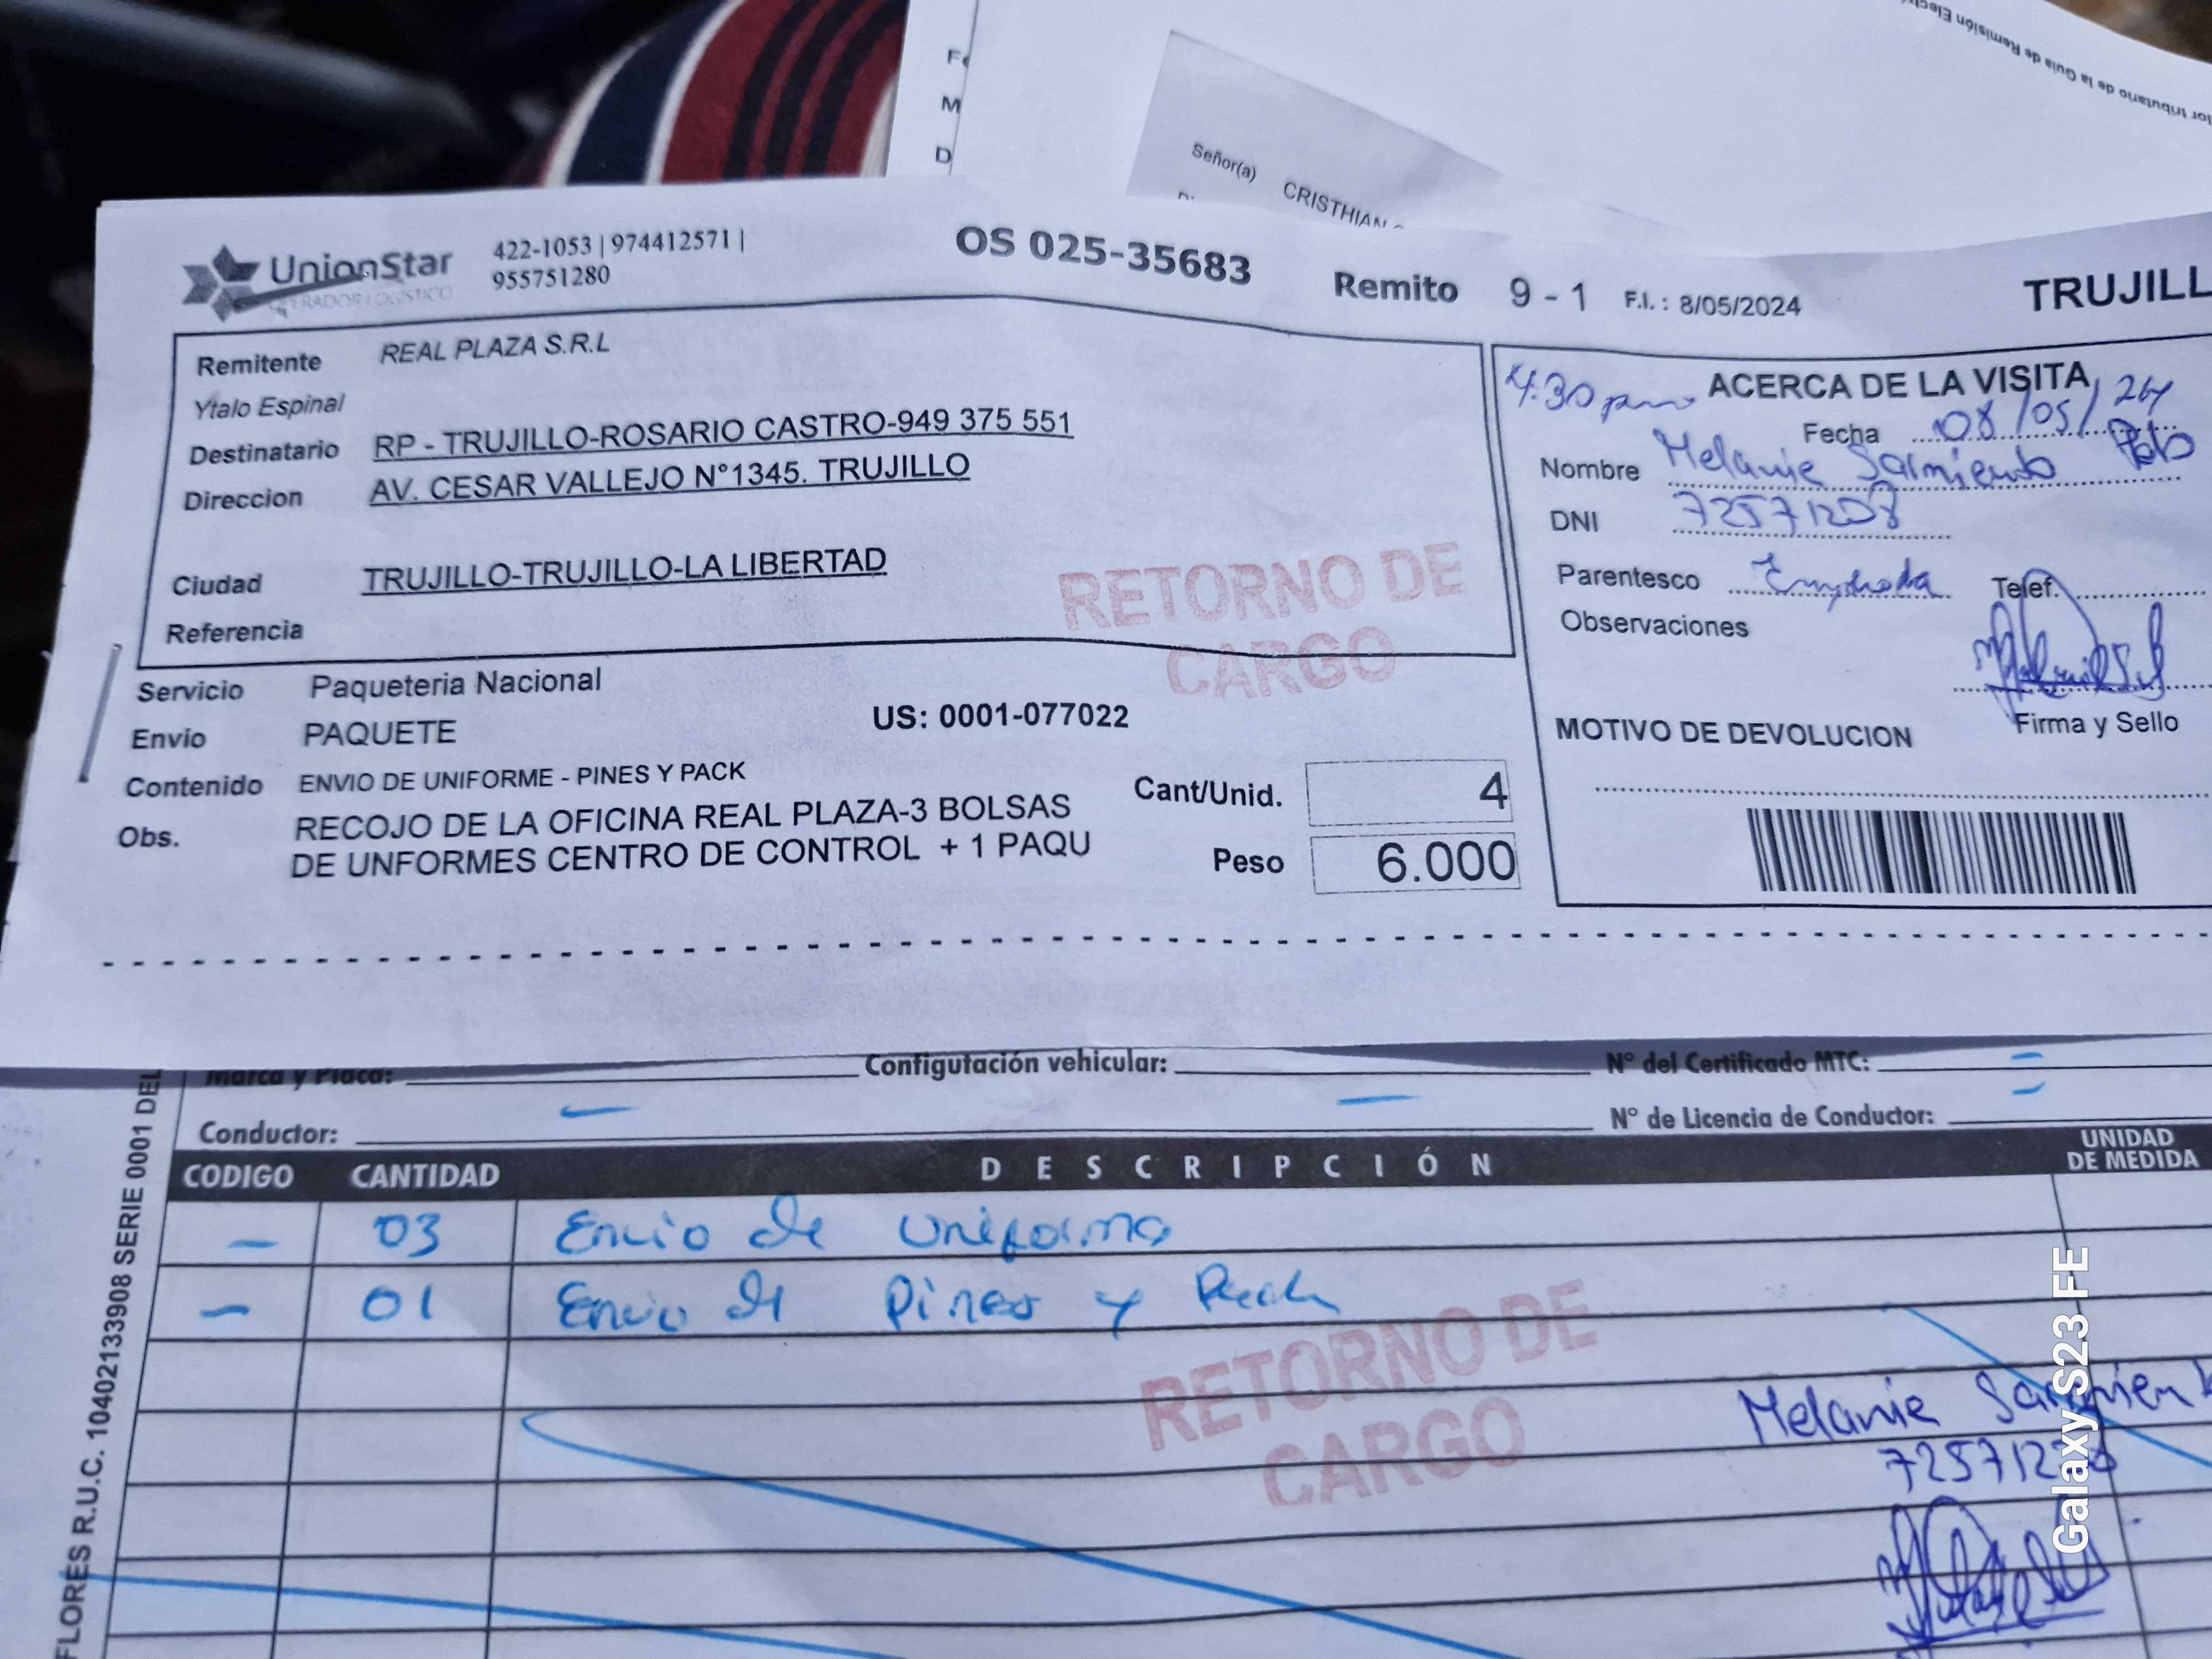 or tributario de la Guía de Remisión Elect
Fe
M
D
Señor(a) CRISTHIAN
UnionStar
OPERADOR LOGISTICO
422-1053 | 974412571 |
955751280
OS 025-35683 Remito 9 - 1 F.I. : 8/05/2024 TRUJILL
Remitente REAL PLAZA S.R.L
Ytalo Espinal
Destinatario RP - TRUJILLO-ROSARIO CASTRO-949 375 551
Direccion AV. CESAR VALLEJO N°1345. TRUJILLO
Ciudad TRUJILLO-TRUJILLO-LA LIBERTAD
Referencia
RETORNO DE
CARGO
4:30 pm ACERCA DE LA VISITA
Fecha 08/05/24
Nombre Melanie Sarmiento
DNI 72571208
Parentesco Telef.
Observaciones
Firma y Sello
MOTIVO DE DEVOLUCION
Servicio Paqueteria Nacional
Envio PAQUETE
US: 0001-077022
Contenido ENVIO DE UNIFORME - PINES Y PACK
Obs. RECOJO DE LA OFICINA REAL PLAZA-3 BOLSAS
DE UNFORMES CENTRO DE CONTROL + 1 PAQU
Cant/Unid. 4
Peso 6.000
Marca y Placa: Configutación vehicular: N° del Certificado MTC: –
Conductor: – – N° de Licencia de Conductor: –
CODIGO CANTIDAD DESCRIPCIÓN UNIDAD DE MEDIDA
– 03 Envio de Uniforme
– 01 Envio de Pines y Pack
RETORNO DE
CARGO
Melanie Sarmien
FLORES R.U.C. 10402133908 SERIE 0001 DEL
Galaxy S23 FE